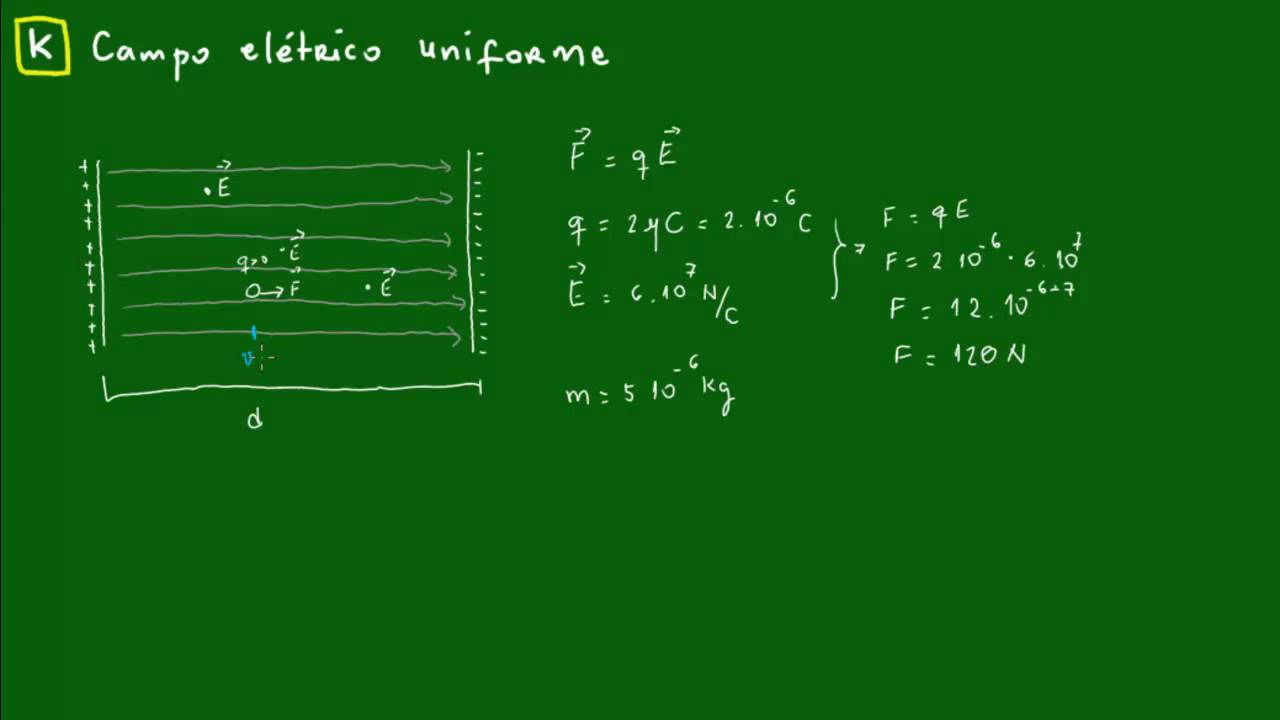 K Campo elétrico uniforme
+ + + + + + + + +
- - - - - - - - - - - - - -
. E⃗
q>0 . E⃗
F⃗ . E⃗
v
d
F⃗ = q E⃗
q = 2μC = 2.10⁻⁶ C
E⃗ = 6.10⁷ N/C
m = 5 10⁻⁶ kg
F = q E
F = 2 10⁻⁶ . 6.10⁷
F = 12.10⁻⁶⁺⁷
F = 120 N